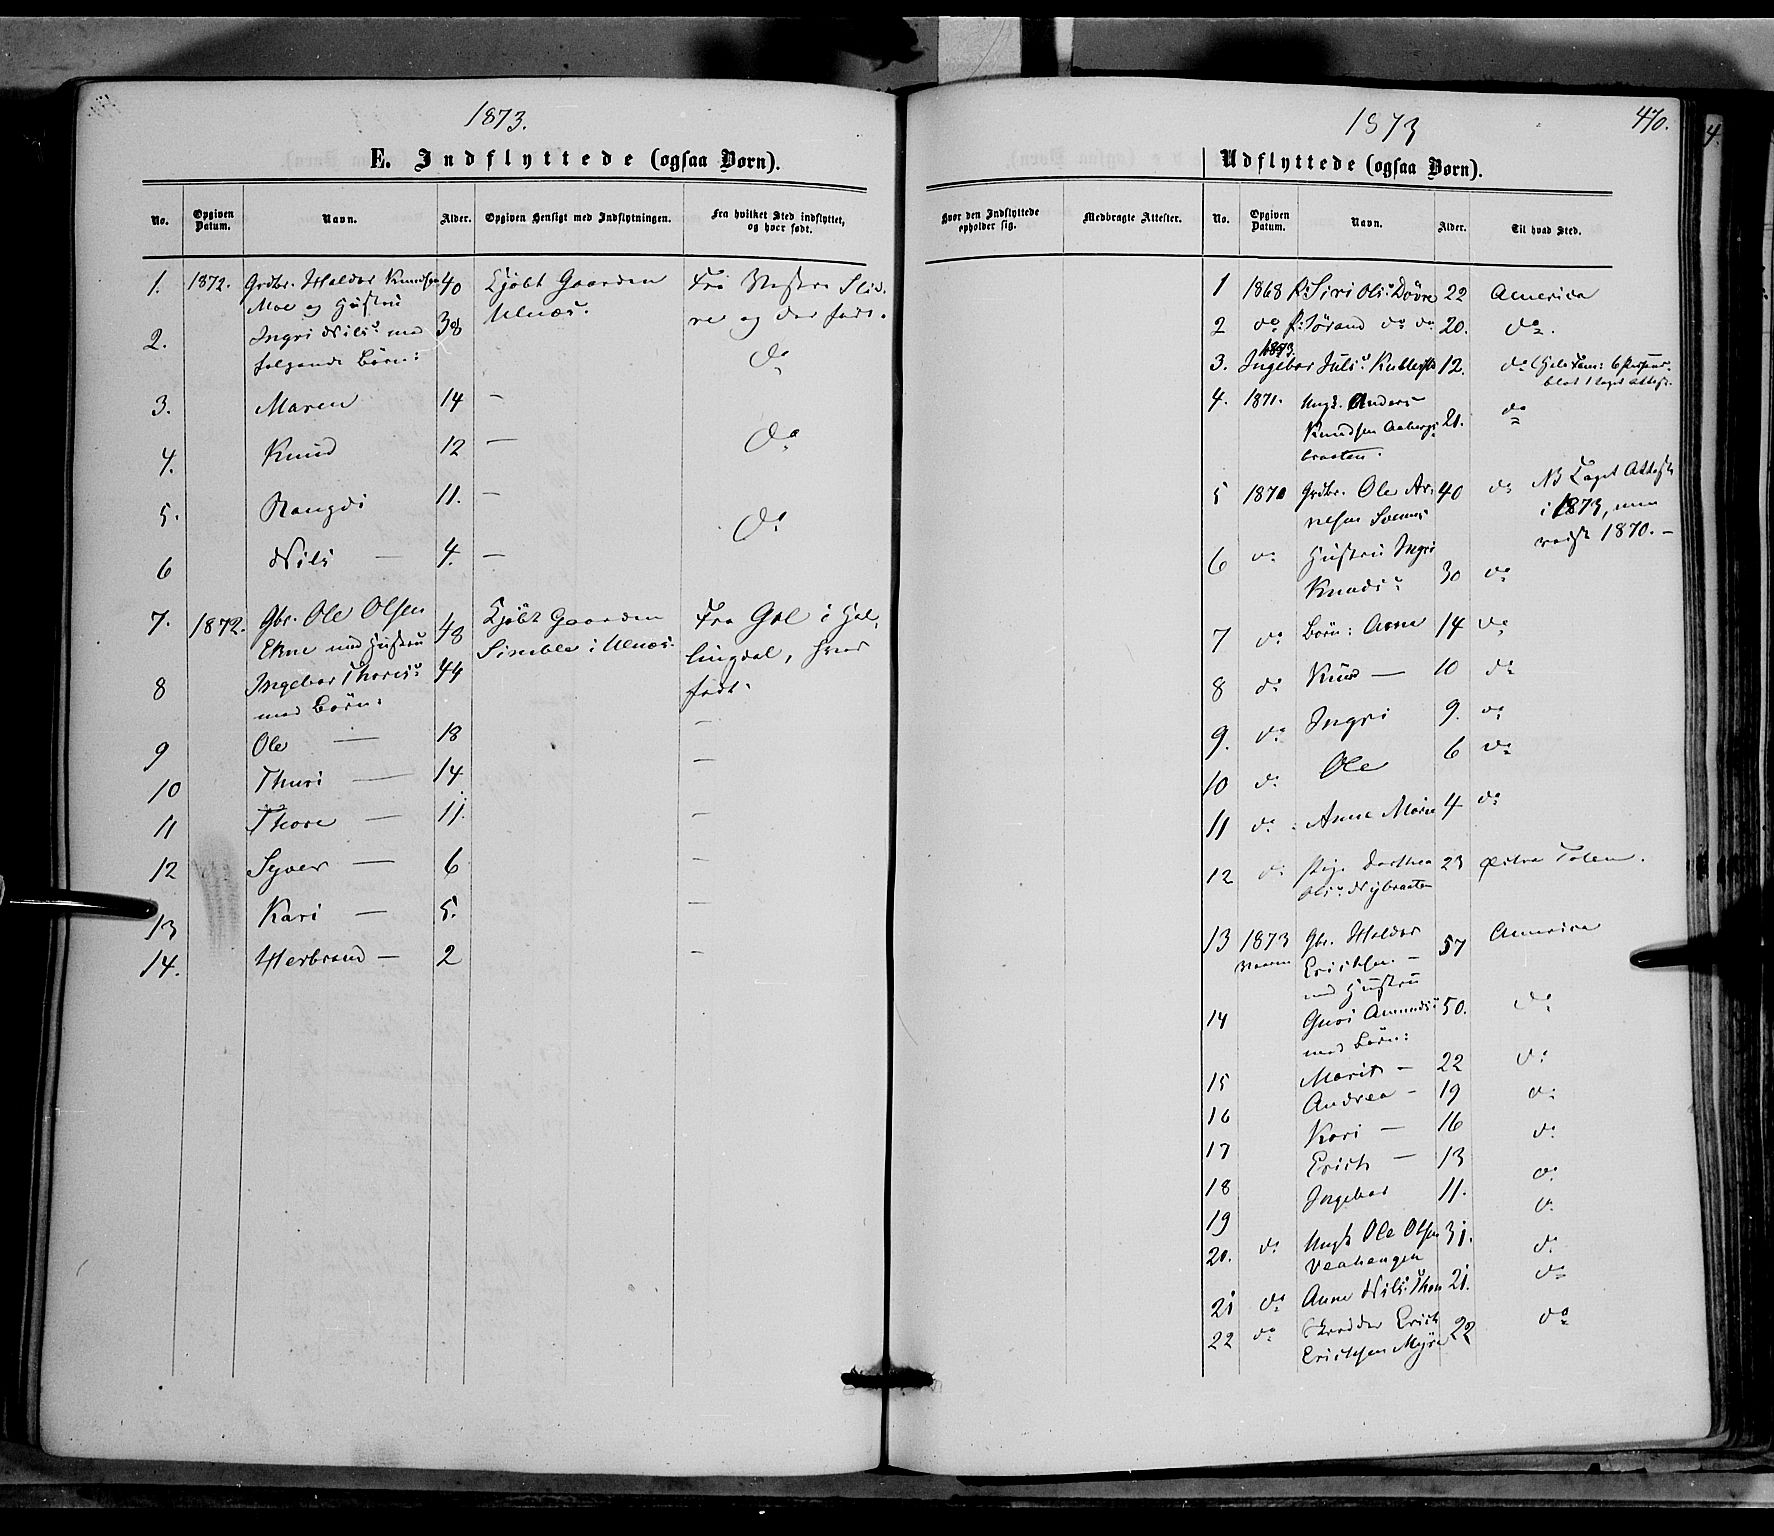 1873.
E. Indflyttede (ogsaa Børn).
No. Opgiven Datum. Navn. Alder. Opgiven Hensigt med Indflytningen. Fra hvilket Sted indflyttet, og hvor født.
1. 1872. Grdbr. Haldor Knudsen 40 Kjøbt Gaarden Fra Vestre Slid-
Moe og Hustru Ulnæs. re og der født.
2. Ingri Nilsd. med 38 do
følgende Børn:
3. Maren 14 —
4. Knud 12 — do
5. Rangdi 11. —
6 Nils — 4. — do
7. 1872. Gbr. Ole Olsen 48 Kjøbt Gaarden Fra Gol i Hal-
Ekne med Hustru i Ulnæs. lingdal, hvor
8 Ingebor Thoresd. 44 født.
med Børn:
9 Ole — 18 —
10 Thuri — 14 —
11 Thore — 11. —
12 Syver — 6 —
13 Kari — 5. —
14. Herbrand — 2 —
1873 470.
Udflyttede (ogsaa Børn).
Hvor den Indflyttede opholder sig. Medbragte Attester. No. Opgiven Datum. Navn. Alder. Til hvad Sted.
1 1868 P. Siri Olsd. Døvre 22 America
2 do P. Jørand do do 20. do.
1873.
3. Ingebor Julsd. 12. do
4. 1871. Ungk. Anders 21. do
Knudsen Aabergs-
braaten.
5 1870 Grdbr. Ole Ar- 40 do NB Taget Attest
nesen Svenes i 1873, men
reist 1870. —
6 do Hustru Ingri 30 do
Knudsd.
7 do Børn: Arne 14 do
8 do Knud — 10 do
9. do Ingri 9. do
10 do Ole 6 do
11 do Anne Marie 4 do
12 do Pige Dorthea 23 Østre Toten.
Olsd. Nybraaten
13 1873 Gbr. Haldor 57 America
Vaaren Erichsen —
med Hustru
14 Guri Amundsd. 50. do
med Børn:
15 Marit — 22 do
16 Andrea — 19 do
17 Kari — 16 do
18 Erich — 13 do
19 Ingebor 11. do
20. do Ungk. Ole Olsen 31. do
Veahaugen
21 do Anne Nilsd. Thon 21. do
22 do Skrædder Erich 22 do
Erichsen Myre